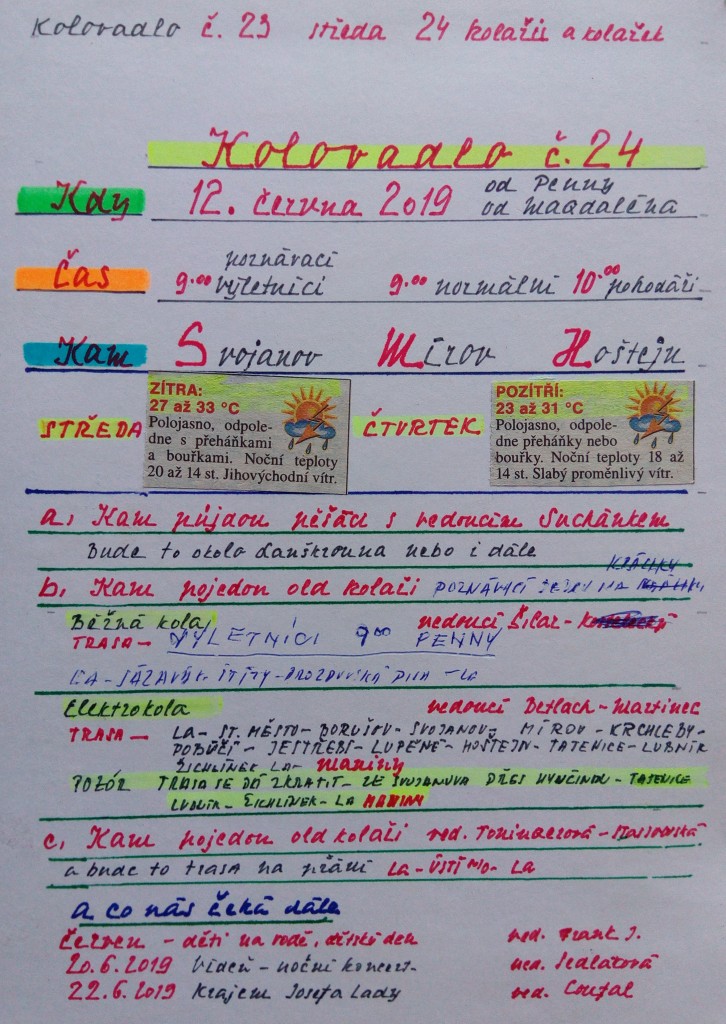 Kolovadlo č. 23 středa 24 kolařů a kolařek
Kolovadlo č. 24
Kdy 12. června 2019 od Penny
od Magdaléna
Čas poznávací
9.00 výletníci 9.00 normální 10.00 pohodáři
Kam Svojanov Mírov Hoštejn
STŘEDA
ZÍTRA:
27 až 33 °C
Polojasno, odpole-
dne s přeháňkami
a bouřkami. Noční teploty
20 až 14 st. Jihovýchodní vítr.
ČTVRTEK
POZÍTŘÍ:
23 až 31 °C
Polojasno, odpole-
dne přeháňky nebo
bouřky. Noční teploty 18 až
14 st. Slabý proměnlivý vítr.
a, Kam půjdou pěšáci s vedoucím Suchánkem
Bude to okolo Lanškrouna nebo i dále
b, Kam pojedou old kolaři POZNÁVACÍ NA
Běžná kola vedoucí Šilar -
TRASA - VÝLETNÍCI 9.00 PENNY
LA - SÁZAVA - ŠTÍTY - DROZDOVSKÁ PILA - LA
Elektrokola vedoucí Betlach - Martinec
TRASA - LA - ST. MĚSTO - BORUŠOV - SVOJANOV, MÍROV - KRCHLEBY -
POBUČÍ - JESTŘEBÍ - LUPĚNÉ - HOŠTEJN - TATENICE - LUBNÍK
ŽICHLÍNEK LA - Mariny
POZOR TRASA SE DÁ ZKRÁTIT - ZE SVOJANOVA PŘES HYNČINOU - TATENICE
LUBNÍK - ŽICHLÍNEK - LA MARINY
c, Kam pojedou old kolaři ved.
a bude to trasa na přání LA - ÚSTÍ N.O. - LA
a co nás čeká dále
Červen - děti na vodě, dětský den ved. Frank J.
20.6.2019 Vídeň - noční koncert. ved. Sedlatová
22.6.2019 Krajem Josefa Lady ved. Coufal